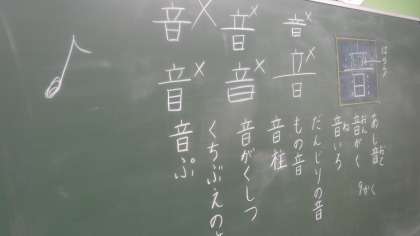 音
あし音
おと
音がく
おん
9かく
音いろ
ね
だんじりの音
もの音
音柱
音がくしつ
くちぶえの
音ぷ
音×
音
音×
音×
音×
音×